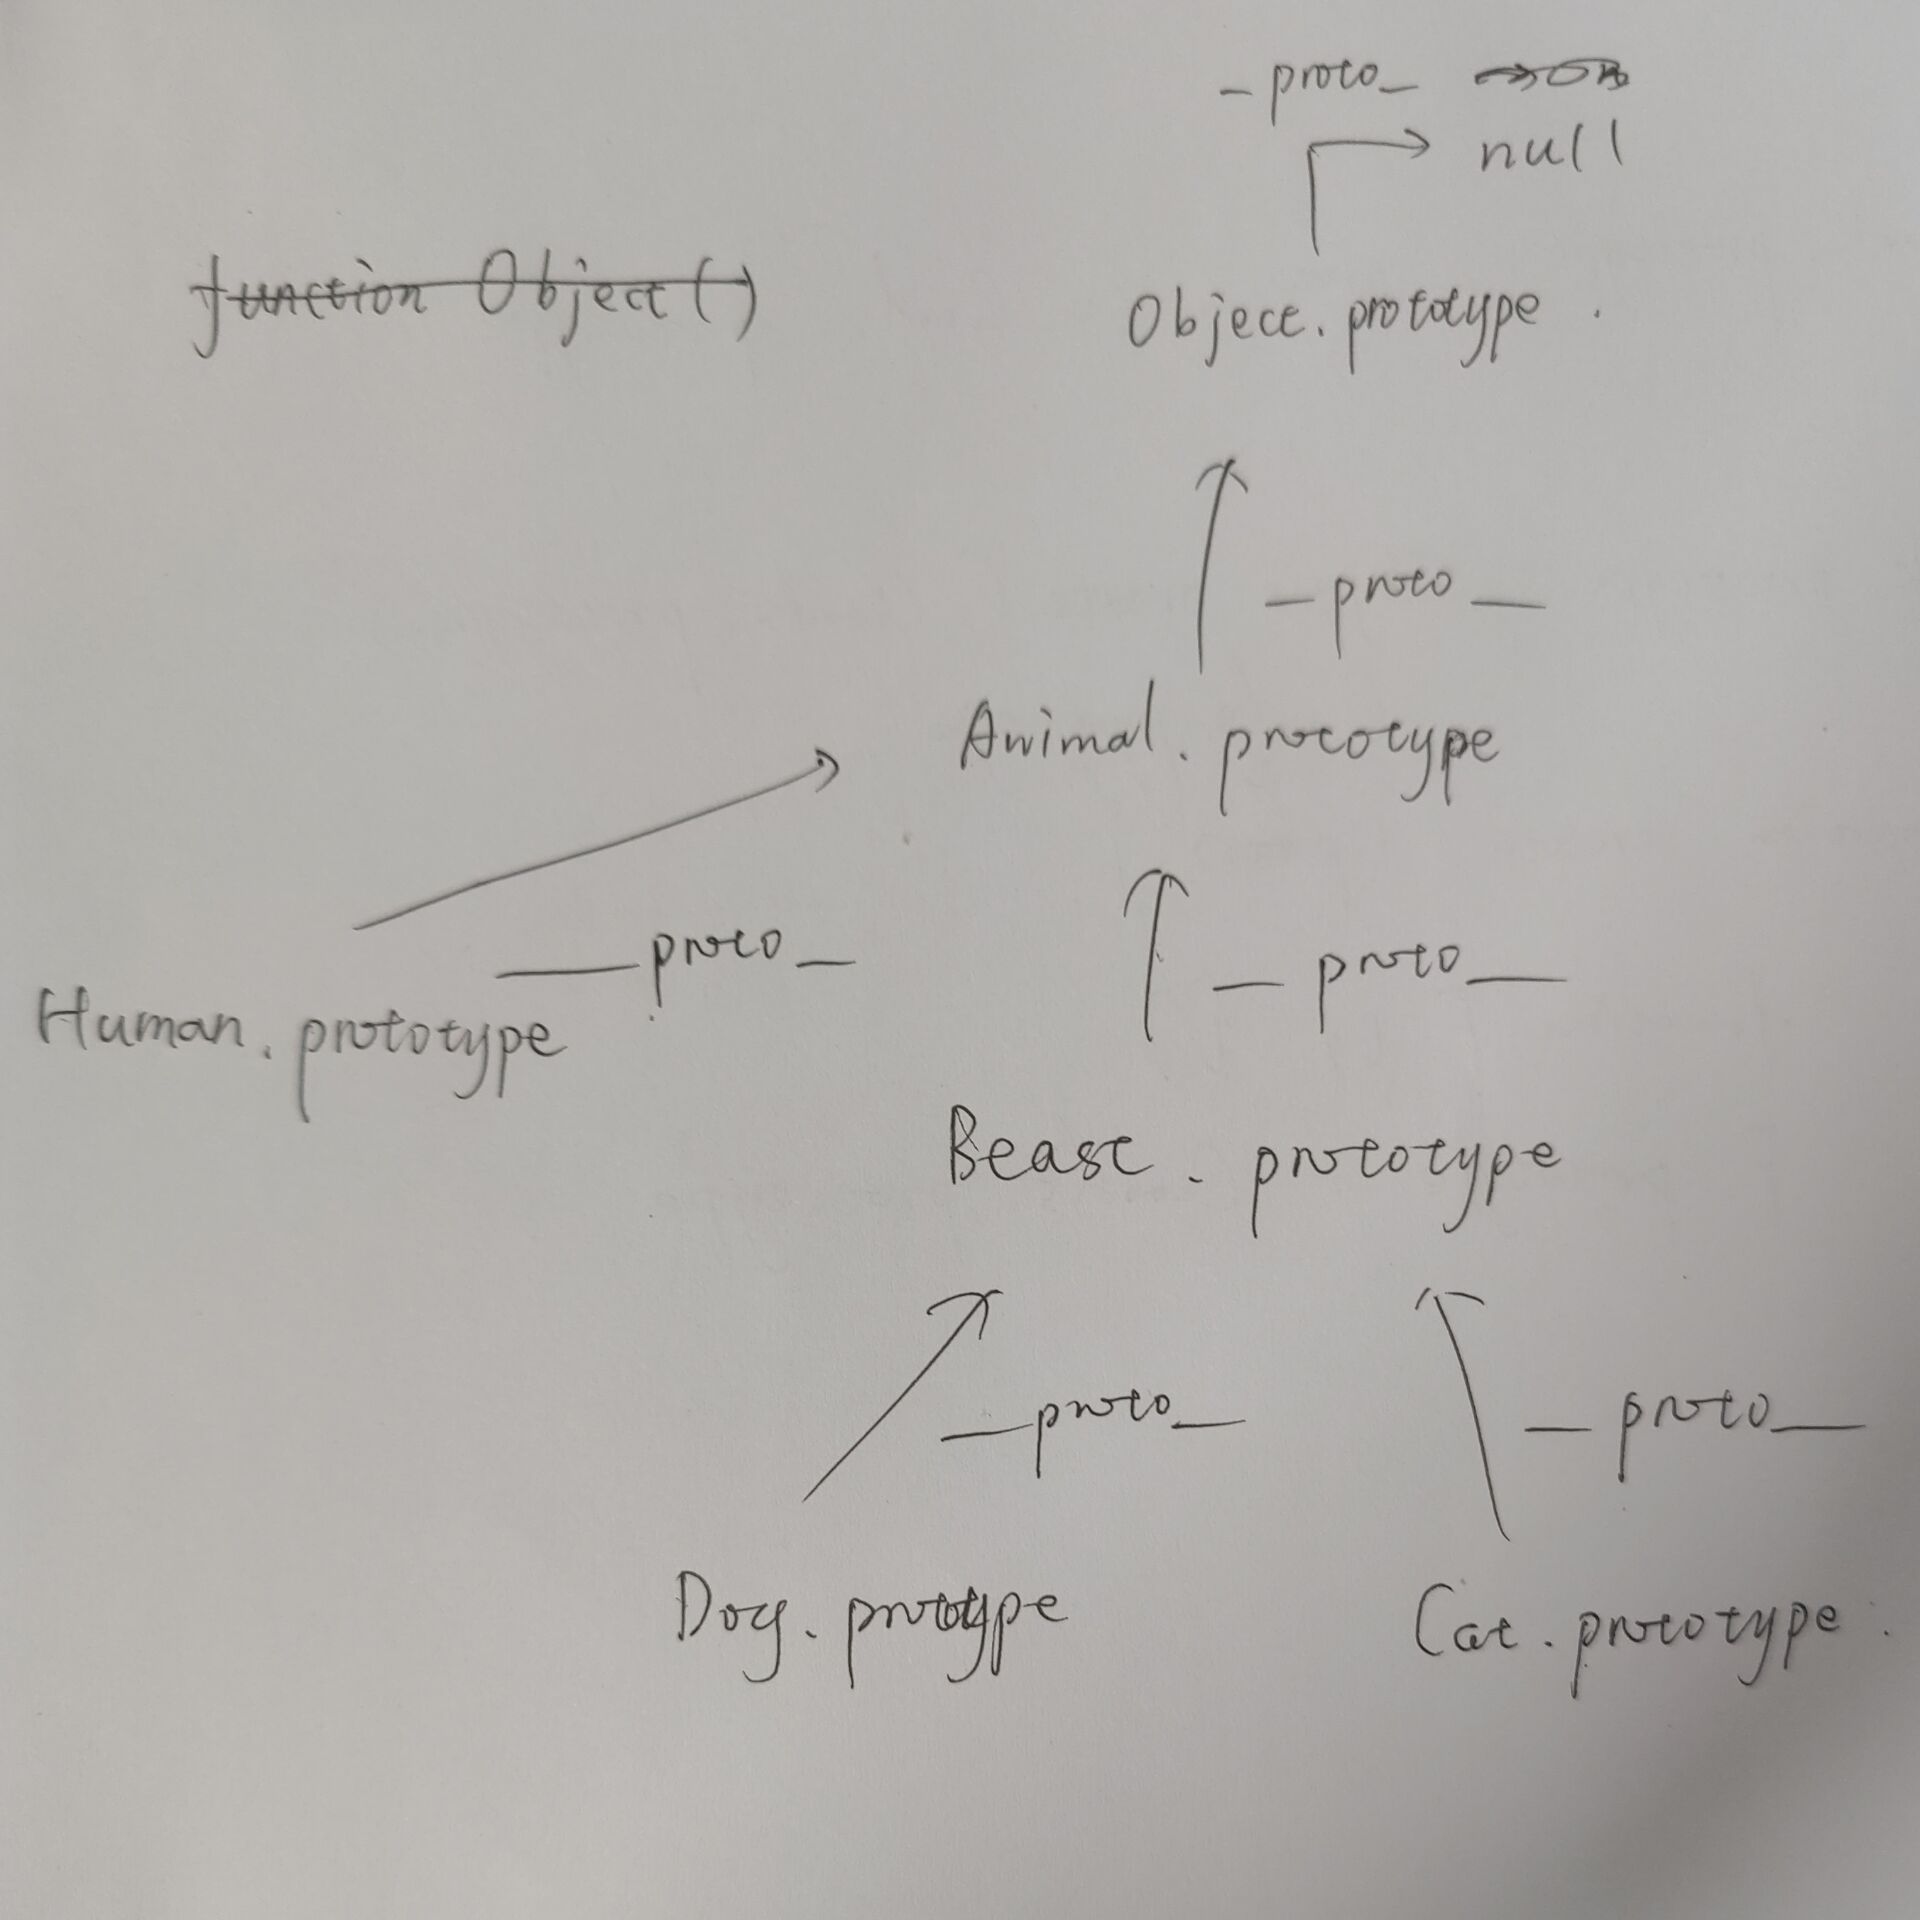 _proto_
null
function Object()
Object.prototype.
_proto_
Animal.prototype
_proto_
_proto_
Human.prototype
Beast.prototype
_proto_
_proto_
Dog.prototype
Cat.prototype.